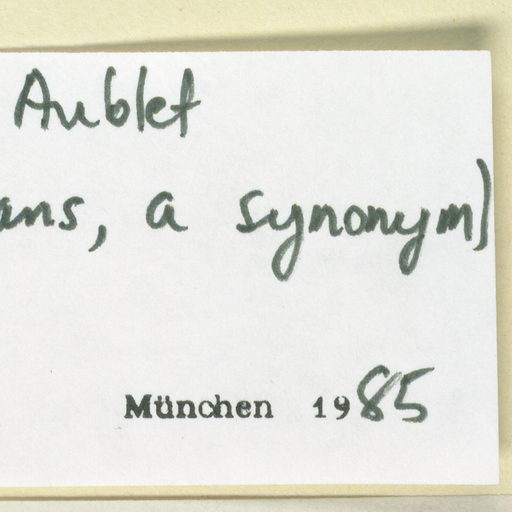 Aublet
ans, a synonym)
München 1985